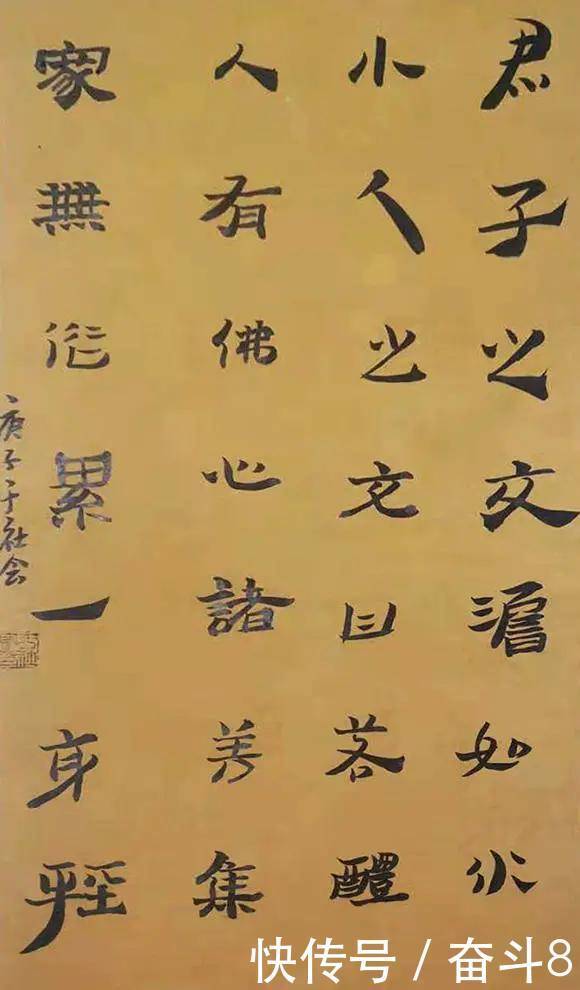 君子之交澹如水
小人之交甘若醴
人有佛心諸善集
家無累一身輕
庚子于社会
快传号 / 奋斗8